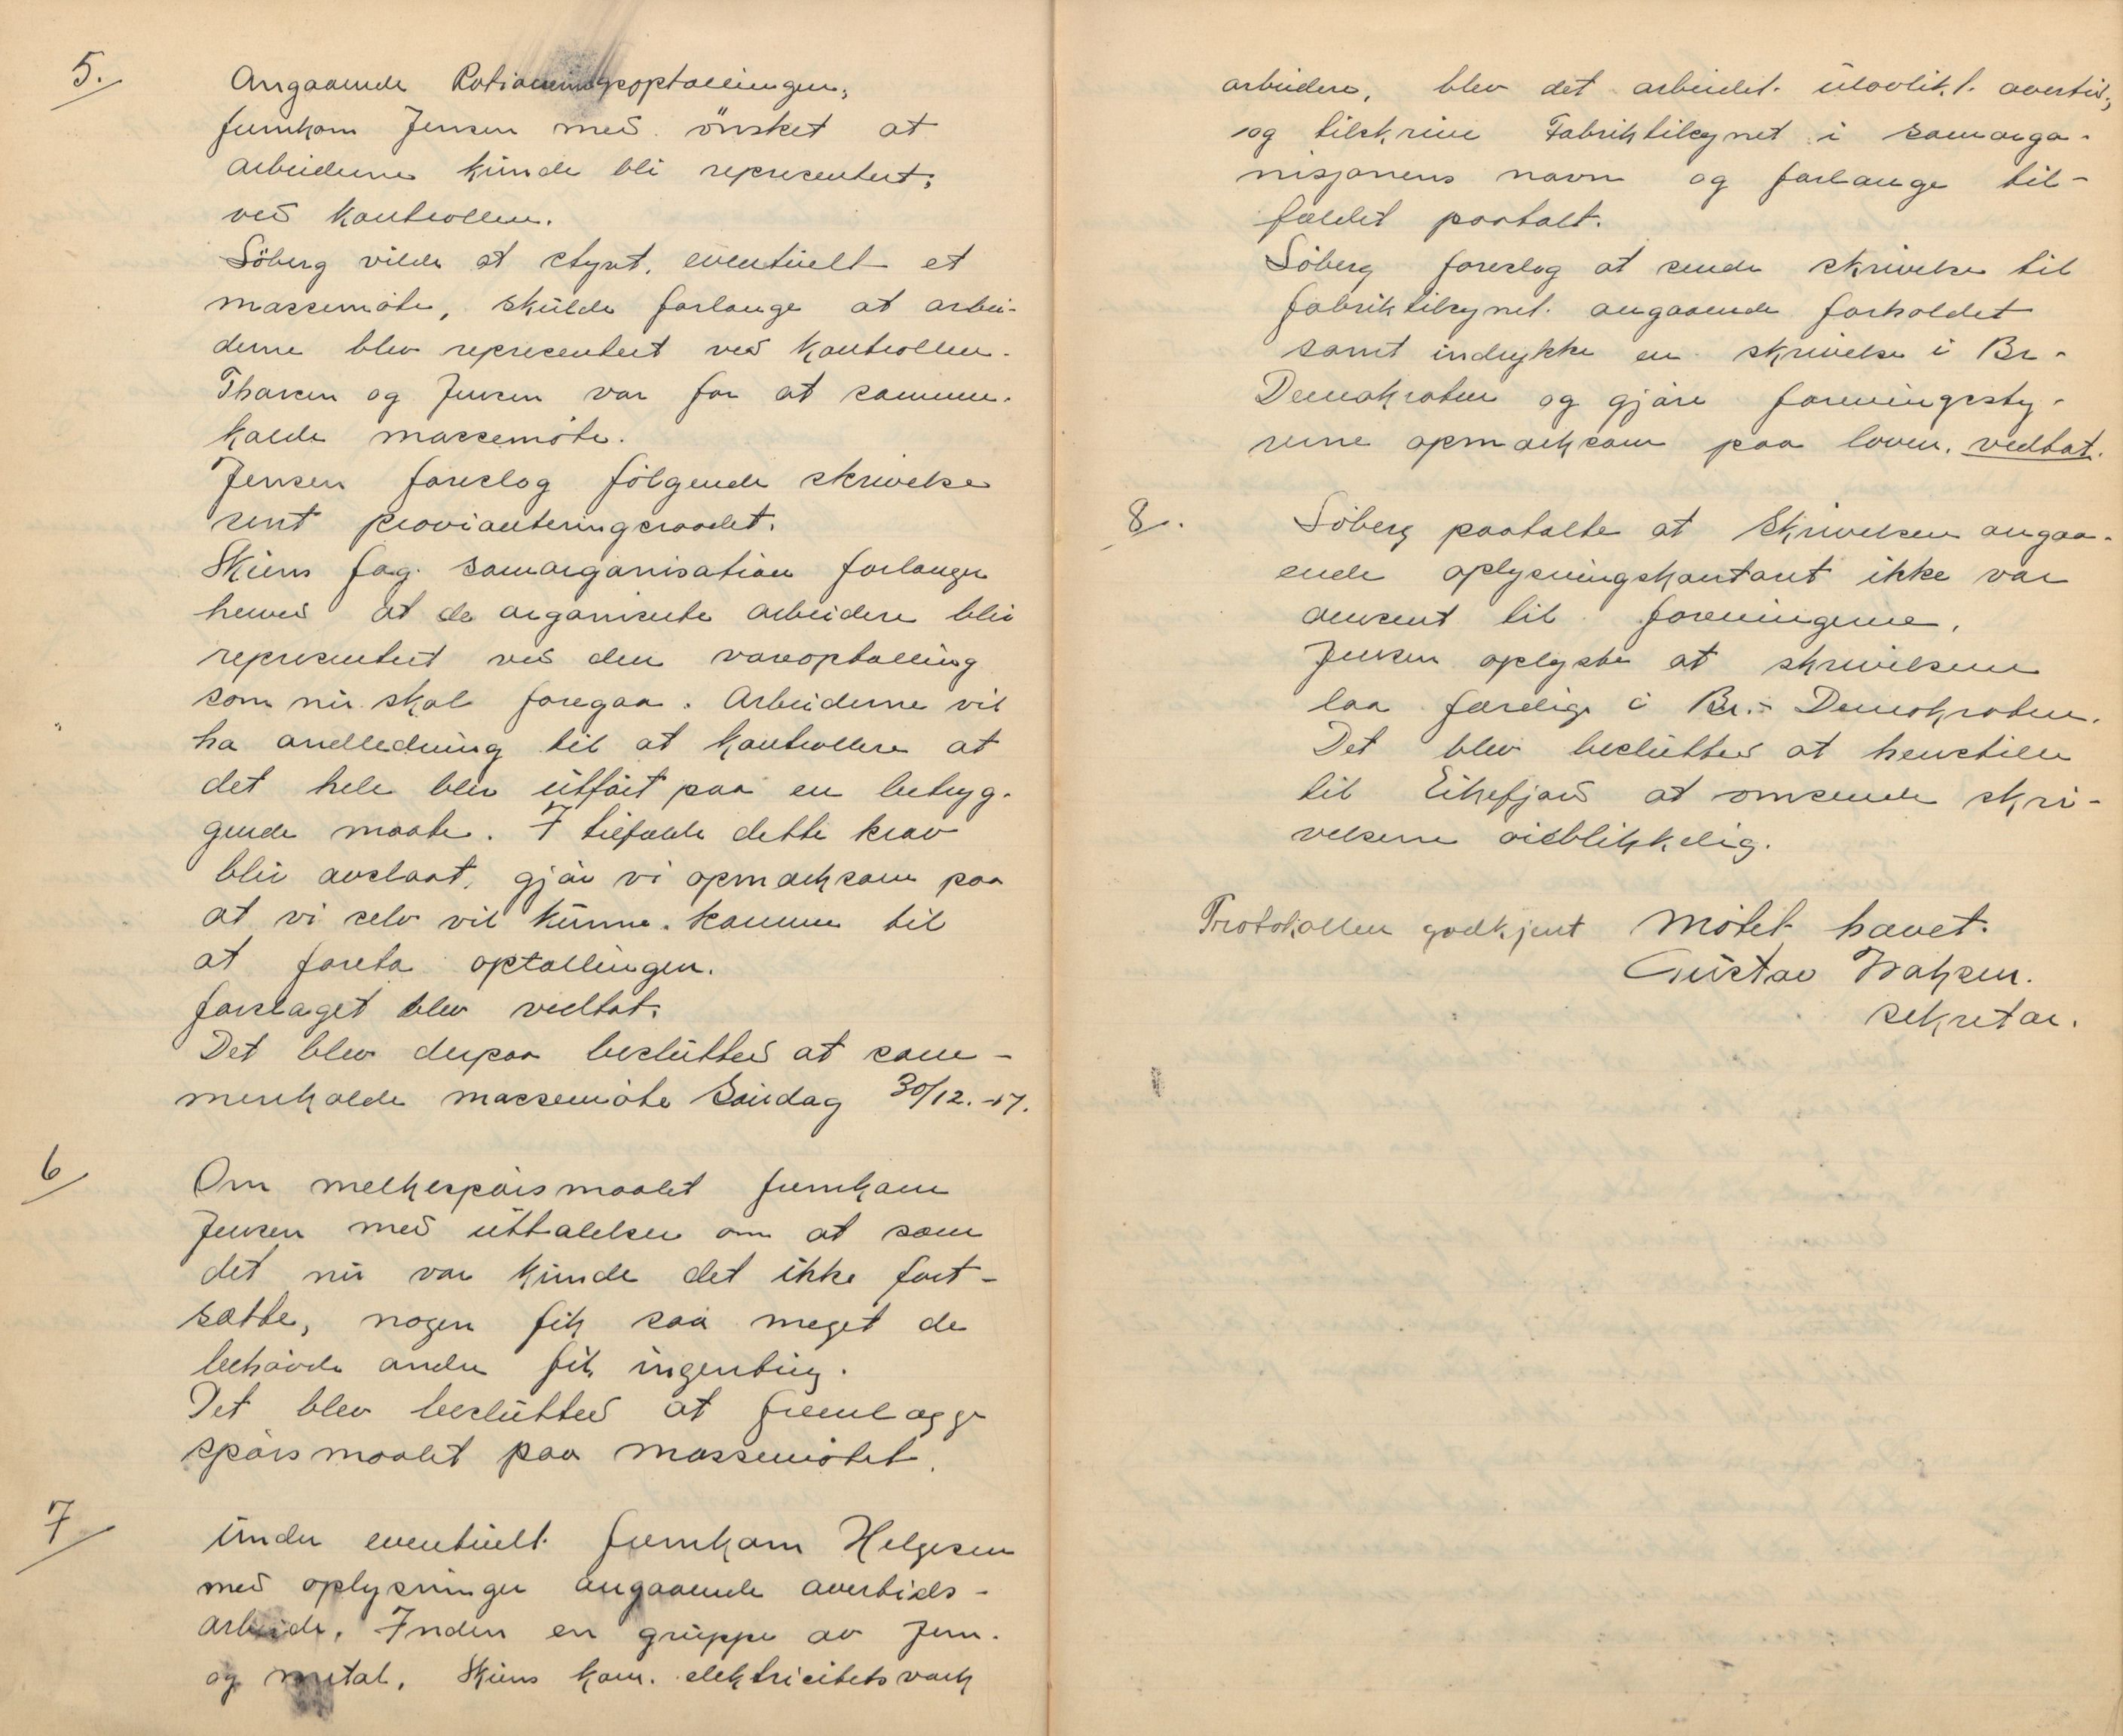 5.
Angaaende Rationeringsoptællingen,
fremkom Jensen med ønsket at
arbeiderne kunde bli representert,
ved kontrollen.
Söberg vilde at styret, eventuelt et
massemöte, skulde forlange at arbei-
derne blev representert ved kontrollen.
Thorsen og Jensen var for at sammen-
kalde massemöte.
Jensen foreslog fölgende skrivelse
sent provianteringsraadet.
Skiens fag. samorganisation forlanger
herved at de organiserte arbeidere blir
representert ved den vareoptælling
som nu skal foregaa. Arbeiderne vil
ha andledning til at kontrollere at
det hele blir utført paa en betryg-
gende maate. I tilfælde dette krav
blir avslaat, gjør vi opmerksom paa
at vi selv vil kunne komme til
at foreta optællingen.
forslaget blev vedtat.
Det blev derpaa beslutted at sam-
menkalde massemöte Søndag 30/12.-17.
6
Om melkespørsmaalet fremkom
Jensen med uttalelser om at som
det nu var kunde det ikke fort-
sætte, nogen fik saa meget de
behøvde andre fik ingenting.
Det blev beslutted at fremlægge
spørsmaalet paa massemötet.
7
Under eventuelt fremkom Helgesen
med oplysninger angaaende overtids-
arbeide. Inden en gruppe av Jern-
og metal, Skiens kom. elektricitetsværk
arbeidere, blev det arbeidet ulovlikt overtid,
og tilskrive Fabriktilsynet i samorga-
nisjonens navn og forlange til-
fældet paatalt.
Söberg foreslog at sende skrivelse til
fabriktilsynet angaaende forholdet
samt indrykke en skrivelse i Br-
Demokraten og gjøre foreningssty-
rerne opmerksom paa loven. vedtat.
8.
Söberg paatalte at Skrivelsen angaa-
ende oplysningskontoret ikke var
omsent til foreningerne.
Jensen oplyste at skrivelsene
laa færdige i Br.- Demokraten.
Det blev beslutted at henstille
til Eikefjord at omsende skri-
velserne øieblikkelig.
Protokollen godkjent Mötet hævet.
Gustav Isaksen.
sekretær.